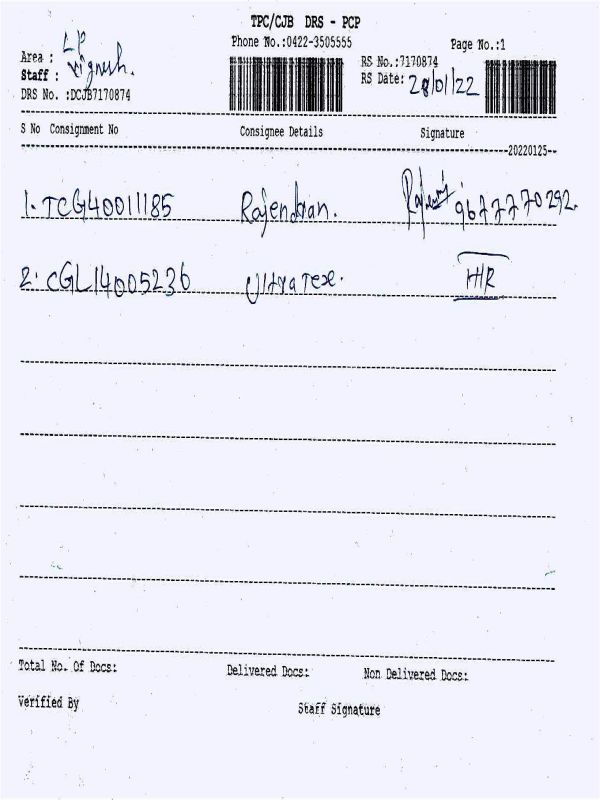 TPC/CJB DRS - PCP
Phone No.:0422-3505555
Page No.:1
Area : LP
Staff : Vignesh.
RS No.:7170874
RS Date: 28/01/22
DRS No. :DCJB7170874
S No Consignment No Consignee Details Signature
20220125
1. TCG40011185 Rajendran. 9677770292.
2. CGL14005236 Ultra Tex. H/R
Total No. Of Docs: Delivered Docs: Non Delivered Docs:
Verified By Staff Signature